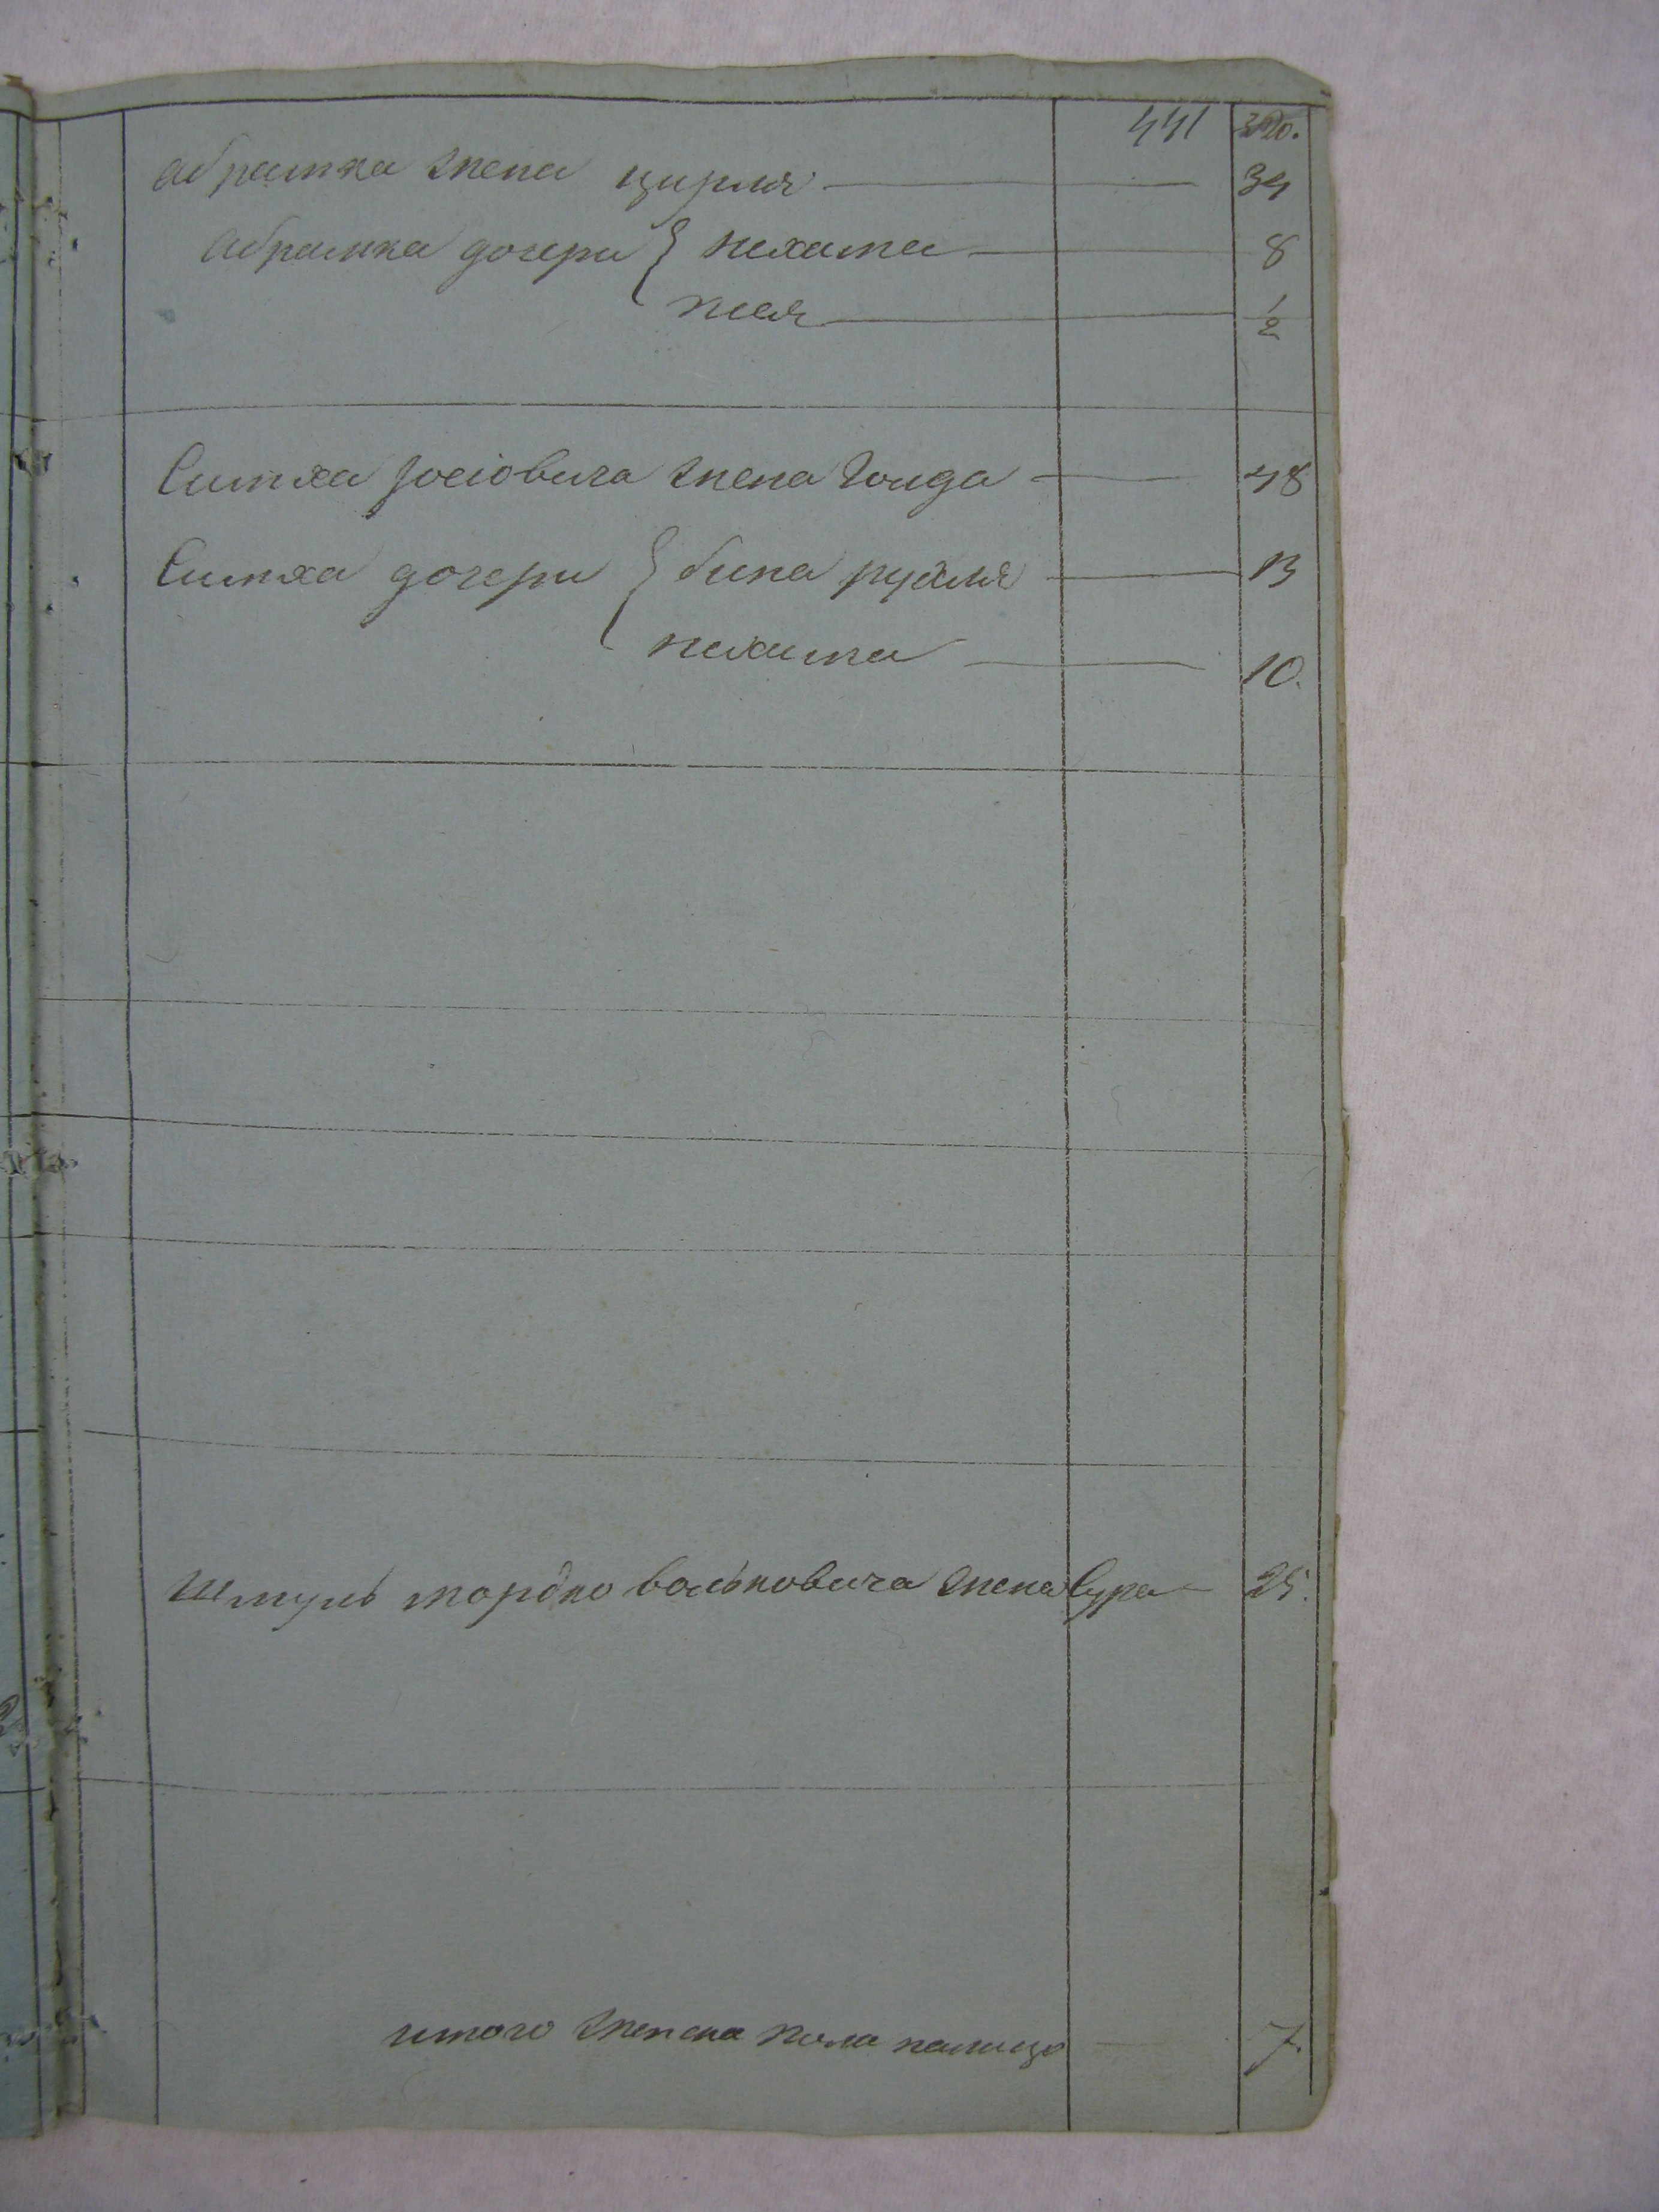 441
Абрамка жена цирля — 34
Абрамка дочери { нехама — 8
песя — 1/2
Симха Иосіовича жена Голда — 48
Симха дочери { бина рухля — 13
нехама — 10.
Шмуль мордко вольковича жена Сура — 25.
итого женска пола налицо — 7.